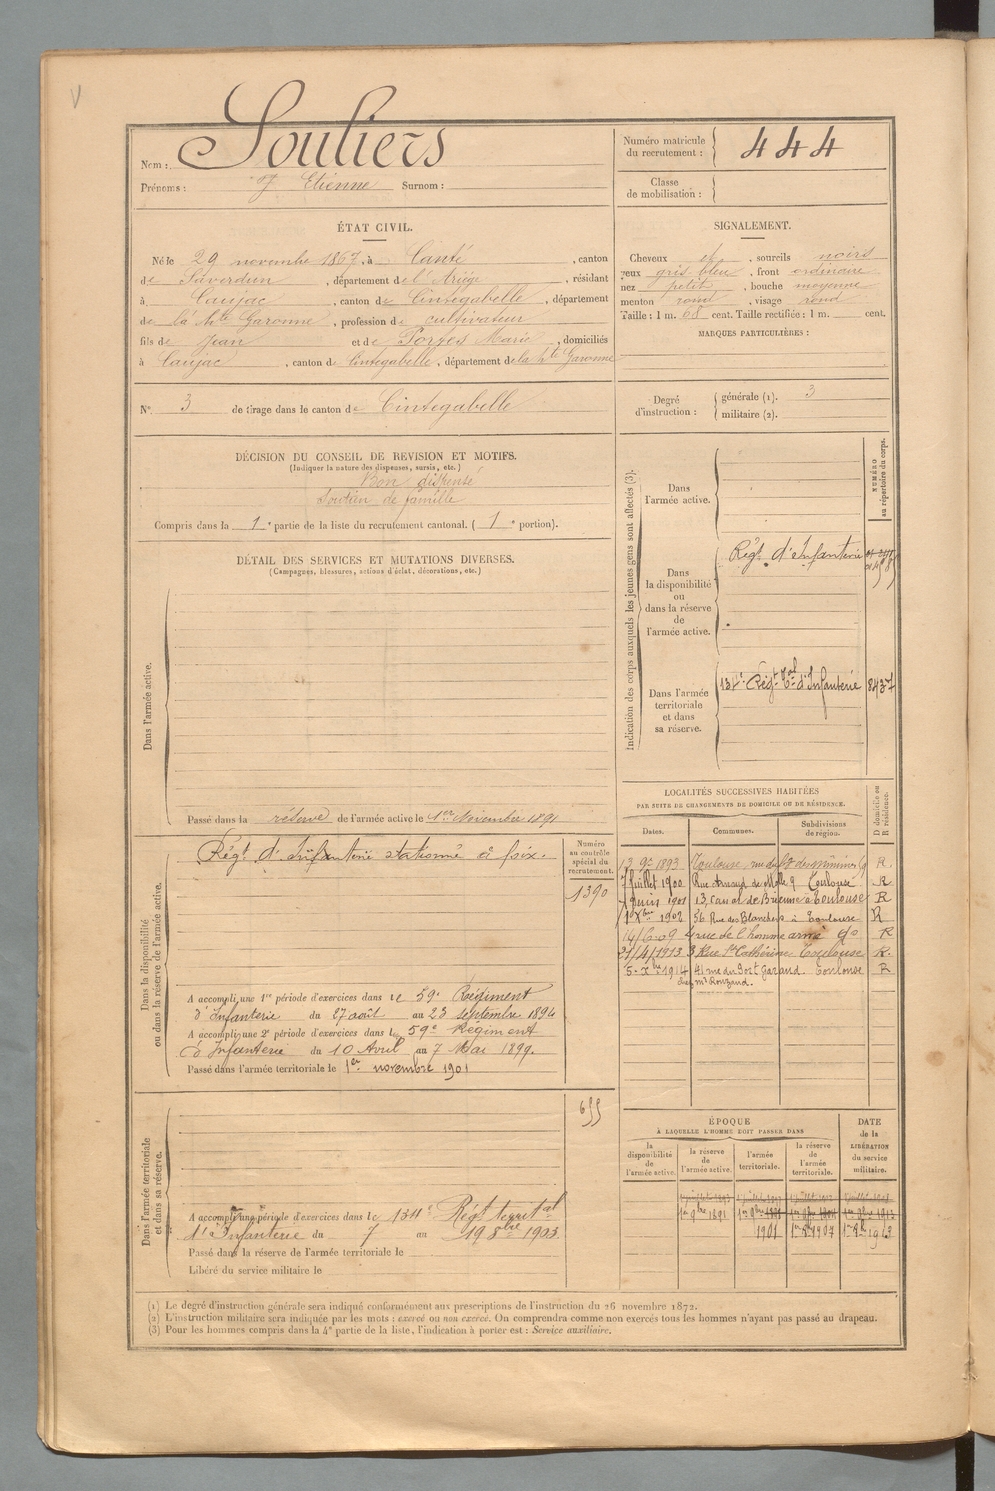 Nom : Souliers
Prénoms : J Etienne Surnom :
Numéro matricule
du recrutement : 444
Classe
de mobilisation :
ÉTAT CIVIL.
Né le 29 novembre 1867, à Canté, canton
de Saverdun, département de l'Ariège, résidant
à Caujac, canton de Cintegabelle, département
de la Hte Garonne, profession de cultivateur
fils de Jean et de Porges Marie, domiciliés
à Caujac, canton de Cintegabelle, département de la hte Garonne
N°. 3 de tirage dans le canton de Cintegabelle
SIGNALEMENT.
Cheveux et, sourcils noirs
yeux gris bleu, front ordinaire
nez petit, bouche moyenne
menton rond, visage rond
Taille : 1 m. 68 cent. Taille rectifiée : 1 m. cent.
MARQUES PARTICULIÈRES :
Degré
d'instruction :
générale (1). 3
militaire (2).
DÉCISION DU CONSEIL DE REVISION ET MOTIFS.
(Indiquer la nature des dispenses, sursis, etc.)
Bon dispensé
Soutien de famille
Compris dans la 1e partie de la liste du recrutement cantonal. ( 1e portion).
DÉTAIL DES SERVICES ET MUTATIONS DIVERSES.
(Campagnes, blessures, actions d'éclat, décorations, etc.)
Dans l'armée active.
Passé dans la réserve de l'armée active le 1er Novembre 1891
Indication des corps auxquels les jeunes gens sont affectés (3).
NUMÉRO
au répertoire du corps.
Dans
l'armée active.
Dans
la disponibilité
ou
dans la réserve
de
l'armée active.
Régt d'Infanterie
Dans l'armée
territoriale
et dans
sa réserve.
134e Régt Tal d'Infanterie 8437
Dans la disponibilité
ou dans la réserve de l'armée active.
Régt d'Infanterie stationné à foix.
Numéro
au contrôle
spécial du
recrutement.
1390
A accompli une 1re période d'exercices dans le 59e Régiment
d'Infanterie du 27 août au 23 septembre 1894
A accompli une 2e période d'exercices dans le 59e Régiment
d'Infanterie du 10 Avril au 7 Mai 1899.
Passé dans l'armée territoriale le 1er novembre 1901
Dans l'armée territoriale
et dans sa réserve.
655
A accompli une période d'exercices dans le 134e Régt territal
d'Infanterie du 7 au 19 8bre 1903
Passé dans la réserve de l'armée territoriale le
Libéré du service militaire le
LOCALITÉS SUCCESSIVES HABITÉES
PAR SUITE DE CHANGEMENTS DE DOMICILE OU DE RÉSIDENCE.
Dates. Communes. Subdivisions
de région.
D domicile ou
R résidence.
13 9e 1893 Toulouse, rue du des minimes 9 R
7 Juillet 1900 Rue Arnaud de 9 Toulouse R
7 Juin 1901 13, Canal de Brienne à Toulouse R
1902 56 Rue des Blanchers à Toulouse R
14/6-09 4 rue de l'homme armé do R
21/4/1913 3 Rue Ste Cathérine Toulouse R.
5-Xbre 1914 41 rue du Port Garaud. Toulouse R
chez Mr
ÉPOQUE
À LAQUELLE L'HOMME DOIT PASSER DANS
DATE
de la
LIBÉRATION
du service
militaire.
la
disponibilité
de
l'armée active.
la réserve
de
l'armée active.
l'armée
territoriale.
la réserve
de l'armée
territoriale.
1er 9bre 1891
1901 1907 1913
(1) Le degré d'instruction générale sera indiqué conformément aux prescriptions de l'instruction du 26 novembre 1872.
(2) L'instruction militaire sera indiquée par les mots : exercé ou non exercé. On comprendra comme non exercés tous les hommes n'ayant pas passé au drapeau.
(3) Pour les hommes compris dans la 4e partie de la liste, l'indication à porter est : Service auxiliaire.